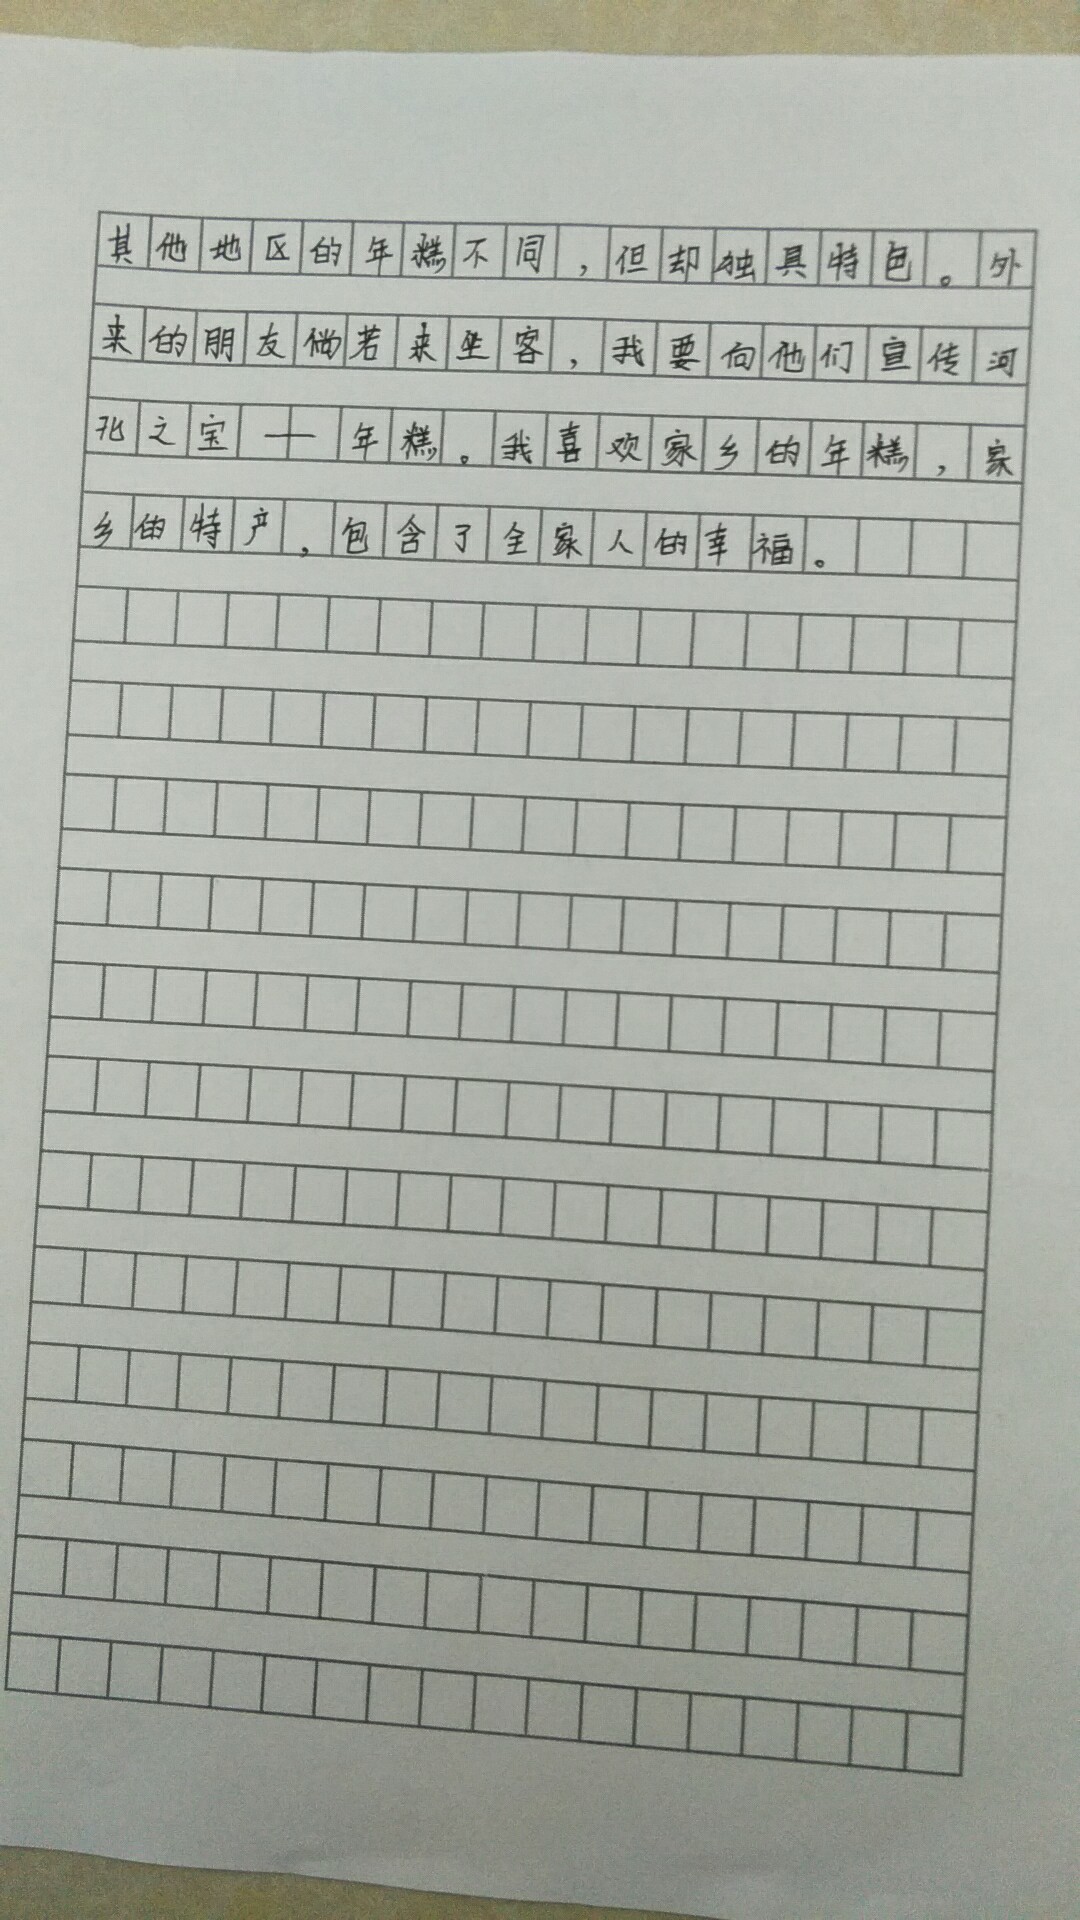 其他地区的年糕不同，但却独具特色。外
来的朋友倘若来坐客，我要向他们宣传河
北之宝——年糕。我喜欢家乡的年糕，家
乡的特产，包含了全家人的幸福。